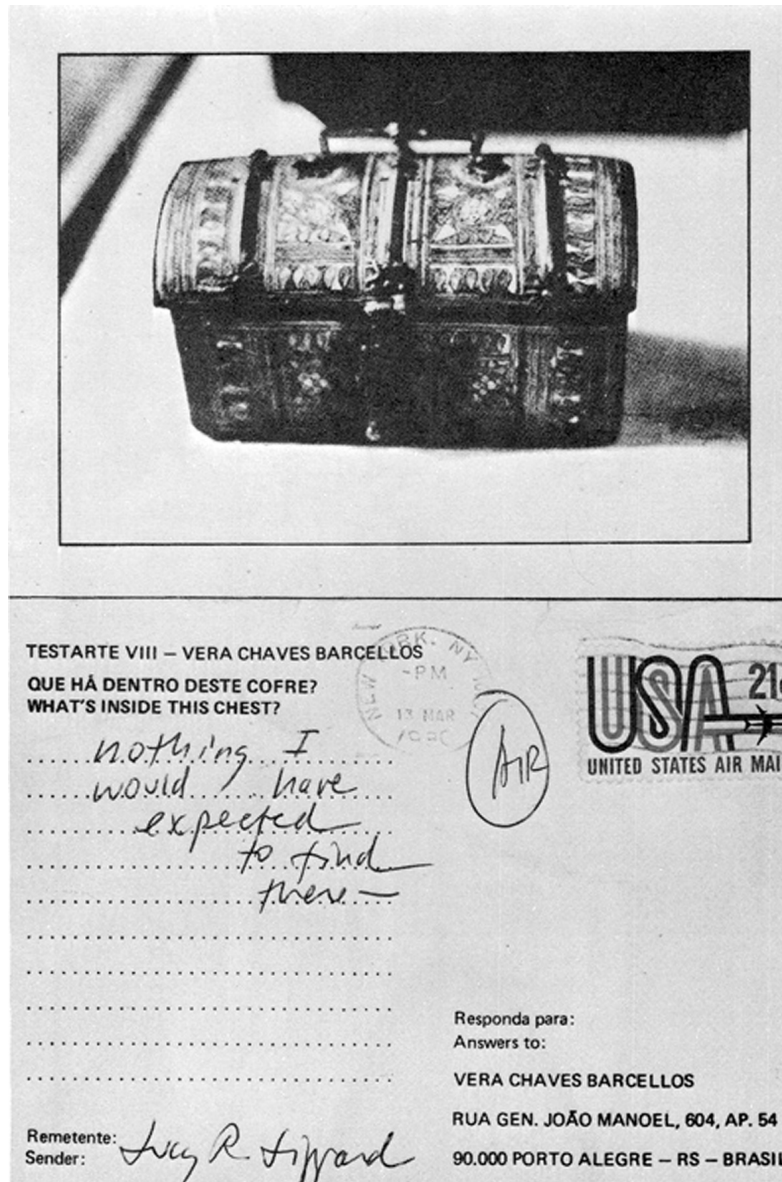 TESTARTE VIII – VERA CHAVES BARCELLOS
QUE HÁ DENTRO DESTE COFRE?
WHAT'S INSIDE THIS CHEST?
nothing I
would have
expected
to find
there —
NEW YORK, NY
PM
13 MAR
AIR
USA 21
UNITED STATES AIR MAI
Responda para:
Answers to:
VERA CHAVES BARCELLOS
RUA GEN. JOÃO MANOEL, 604, AP. 54
90.000 PORTO ALEGRE – RS – BRASIL
Remetente:
Sender: Lucy R. Lippard